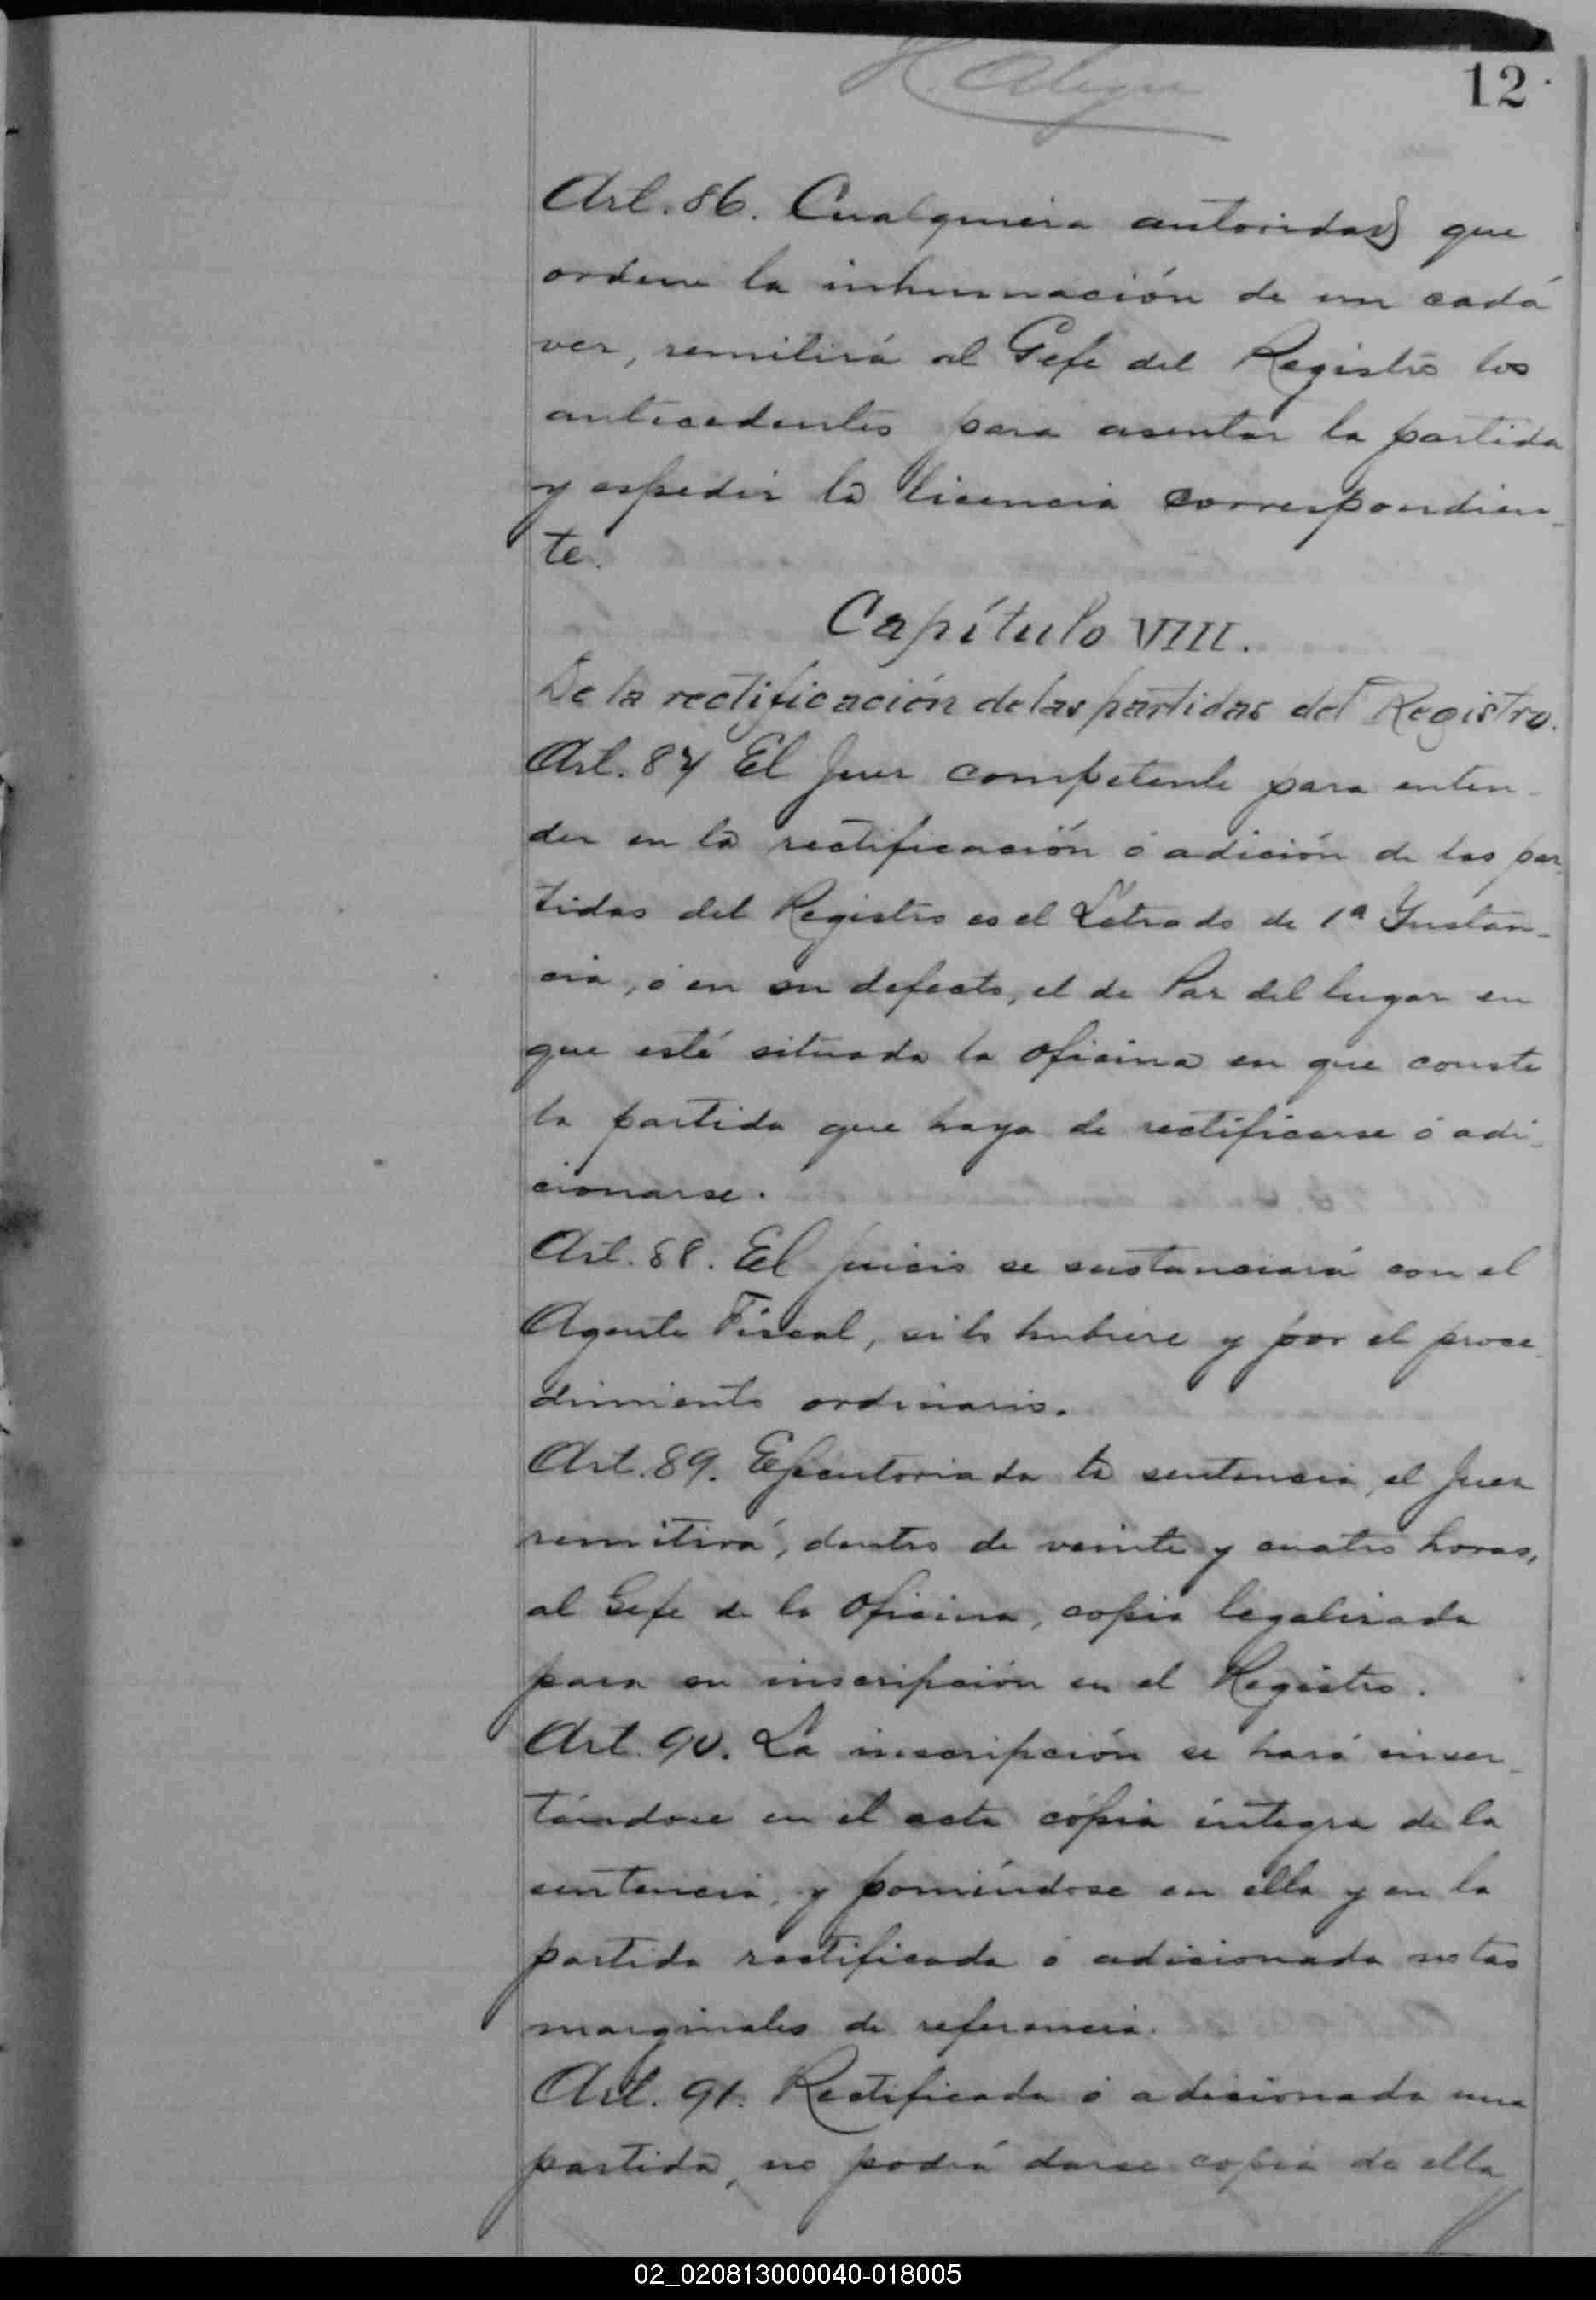 12
Art. 86. Cualquiera autoridad que
ordene la inhumación de un cadá
ver, remitirá al Gefe del Registro los
antecedentes para asentar la partida
y espedir la licencia correspondien-
te.
Capítulo VIII.
De la rectificación de las partidas del Registro.
Art. 87 El Juez competente para enten-
der en la rectificación ó adición de las par-
tidas del Registro es el Letrado de 1ª Instan-
cia, ó en su defecto, el de Paz del lugar en
que esté situada la oficina en que conste
la partida que haya de rectificarse ó adi-
cionarse.
Art. 88. El juicio se sustanciará con el
Agente Fiscal, si lo hubiere y por el proce-
dimiento ordinario.
Art. 89. Ejecutoriada la sentencia, el Juez
remitirá, dentro de veinte y cuatro horas,
al Gefe de la Oficina, copia legalizada
para su inscripción en el Registro.
Art. 90. La inscripción se hará inser-
tándose en el acta cópia íntegra de la
sentencia, y poniéndose en ella y en la
partida rectificada ó adicionada notas
marginales de referencia.
Art. 91. Rectificada ó adicionada una
partida, no podrá darse copia de ella
02_020813000040-018005